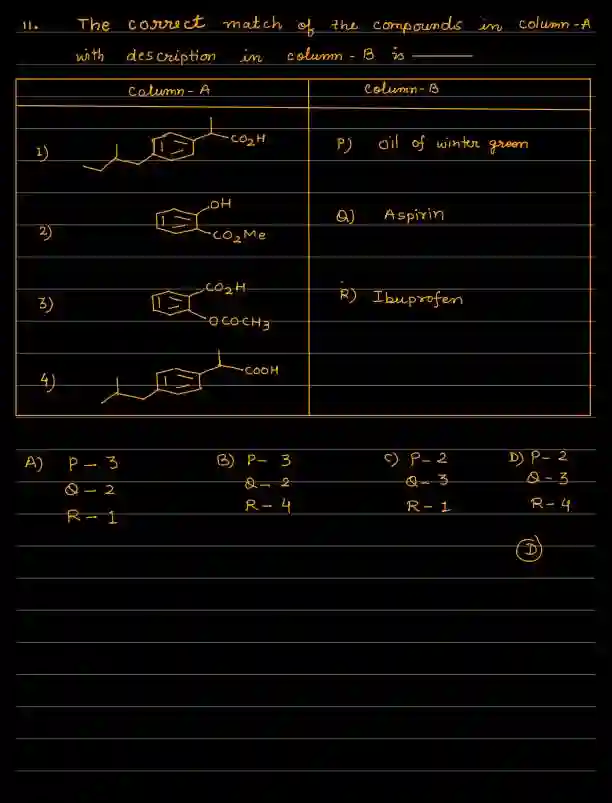 11. The correct match of the compounds in column-A
with description in column-B is ———
Column-A Column-B
1) CO2H P) oil of winter green
2) OH CO2Me Q) Aspirin
3) CO2H OCOCH3 R) Ibuprofen
4) COOH
A) P-3 B) P-3 C) P-2 D) P-2
Q-2 Q-2 Q-3 Q-3
R-1 R-4 R-1 R-4
D